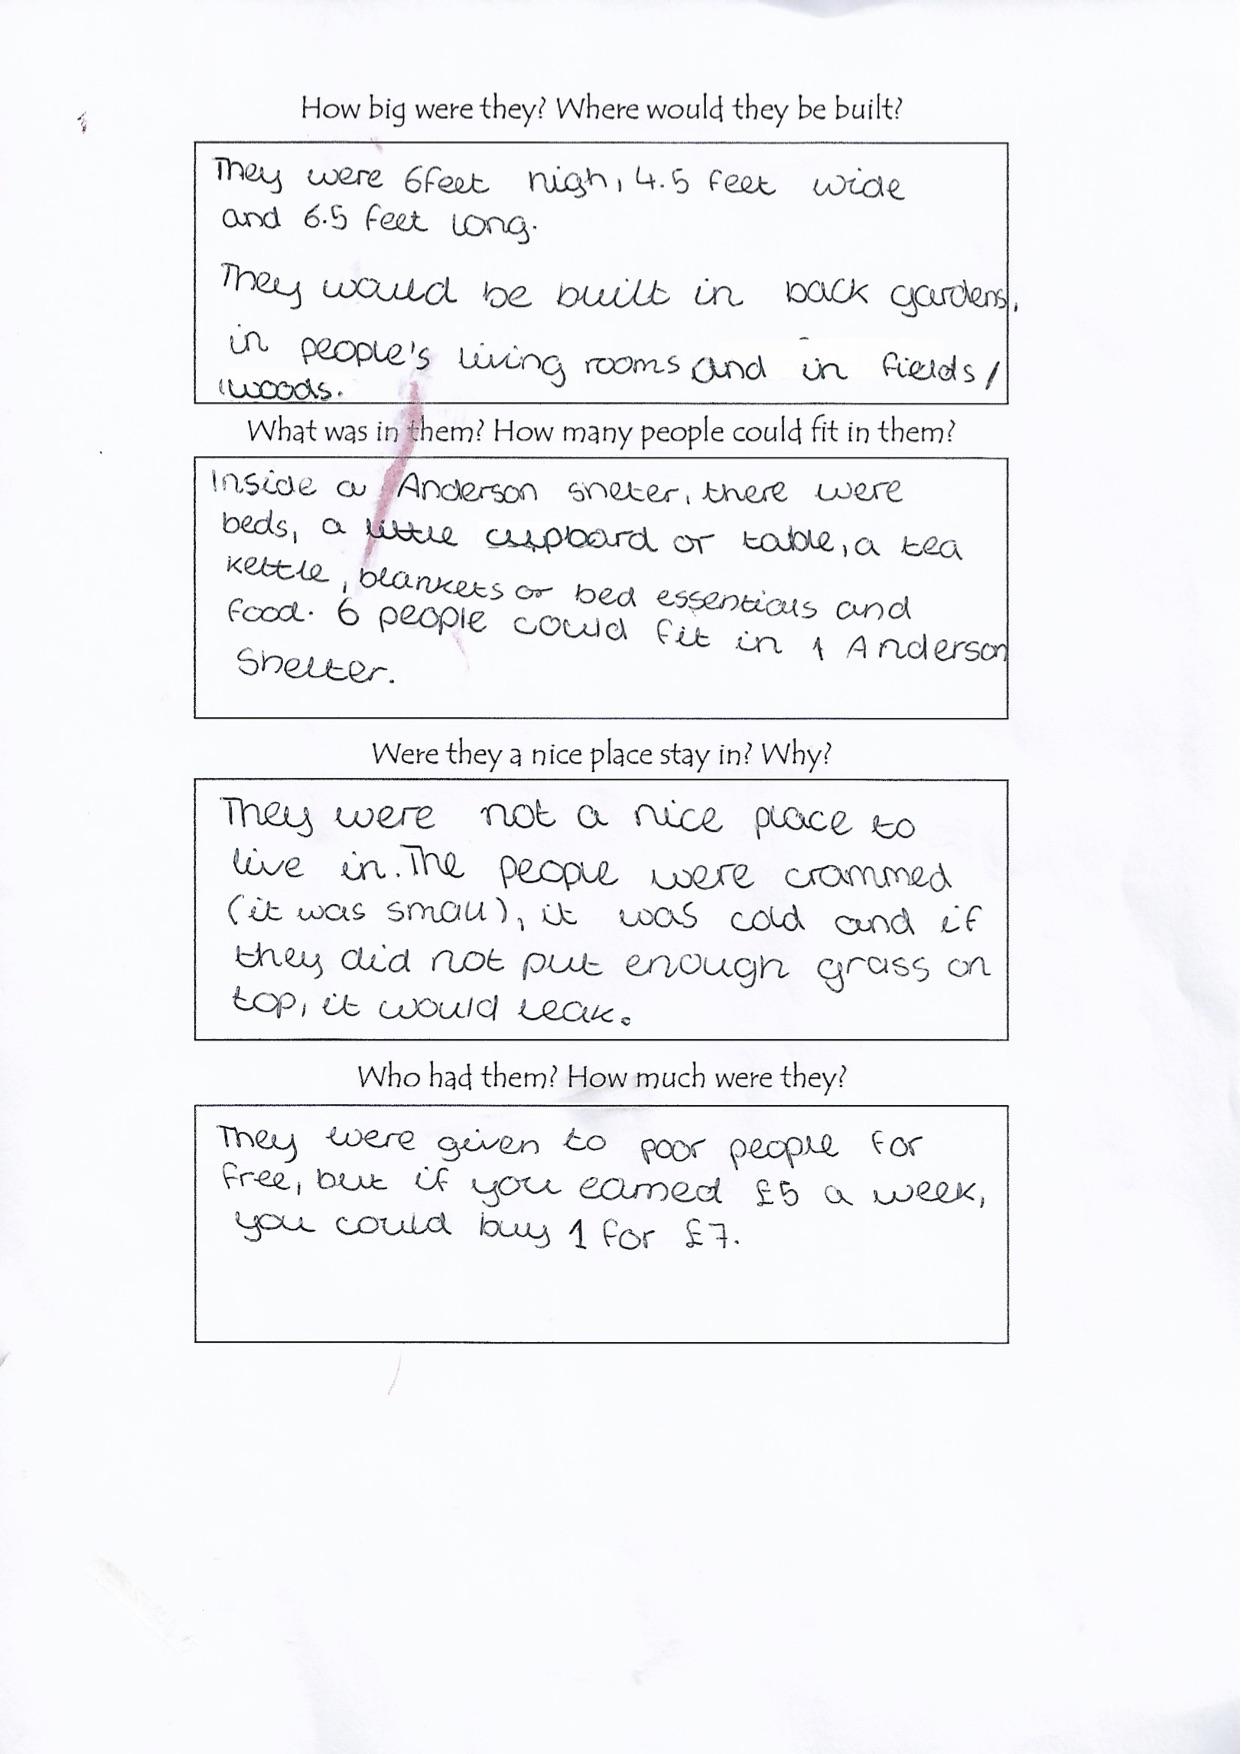 How big were they? Where would they be built?
They were 6feet high, 4.5 feet wide
and 6.5 feet long.
They would be built in back gardens,
in people's living rooms and in fields/
woods.
What was in them? How many people could fit in them?
Inside a Anderson shelter, there were
beds, a little cupboard or table, a tea
kettle, blankets or bed essentials and
food. 6 people could fit in 1 Anderson
Shelter.
Were they a nice place stay in? Why?
They were not a nice place to
live in. The people were crammed
(it was small), it was cold and if
they did not put enough grass on
top, it would leak.
Who had them? How much were they?
They were given to poor people for
free, but if you earned £5 a week,
you could buy 1 for £7.